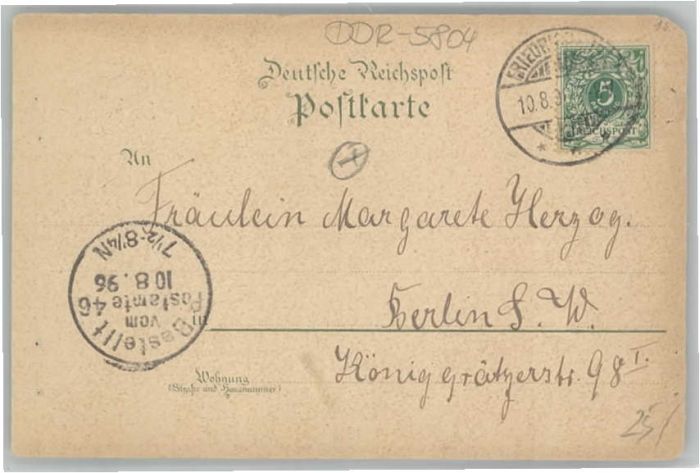 DDR-5804
Deutsche Reichspost
Postkarte
10.8.9
5
REICHSPOST
An
Fräulein Margarete Herzog.
Berlin S. W.
Königgrätzerstr. 98 I.
Wohnung
(Straße und Hausnummer)
Bestellt
vom
Postamte 46
10 8. 96
7½-8¼N
25